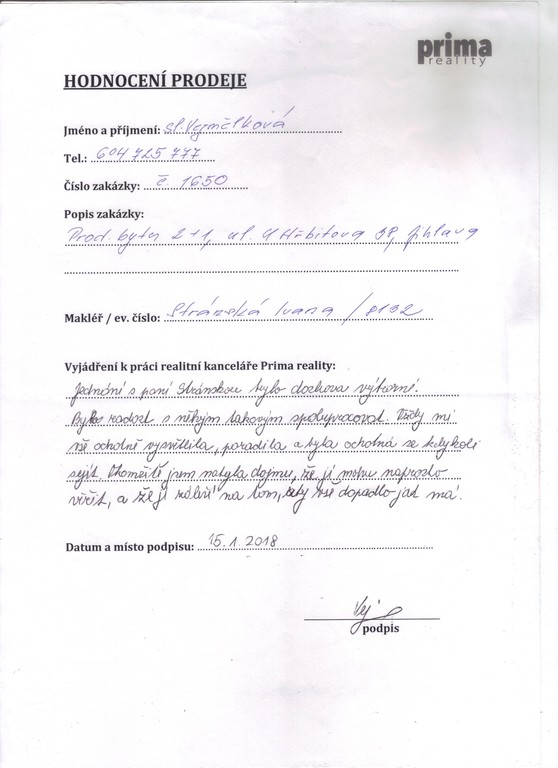 prima
reality
HODNOCENÍ PRODEJE
Jméno a příjmení: sl. Vejmělková
Tel.: 604 725 777
Číslo zakázky: č. 1650
Popis zakázky:
Prod. bytu 2+1, ul. U Hřbitova 38, Jihlava
Makléř / ev. číslo: Stránská Ivana / 8132
Vyjádření k práci realitní kanceláře Prima reality:
Jednání s paní Stránskou bylo doslova výborné.
Byla radost s někým takovým spolupracovat. Vždy mi
vše ochotně vysvětlila, poradila a byla ochotná se kdykoli
sejít. Okamžitě jsem nabyla dojmu, že jí mohu naprosto
věřit, a že jí záleží na tom, aby vše dopadlo jak má.
Datum a místo podpisu: 15.1.2018
podpis